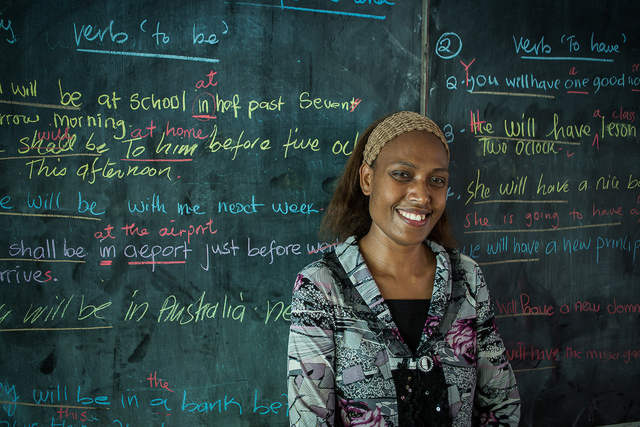 verb 'to be'
will be at school at in haf past Sevent
rrow morning.
shall be at home To him before five oc
This afternoon.
e will be with me next week.
at the airport
shall be in aieport just before wen
rrives.
will be in Australia ne
the
will be in a bank be
this
2 verb 'To have'
2. You will have a one good
a class
He will have lesson
Two oclock.
she will have a nice bo
she is going to have
e will have a new princip
will have a new
will have the